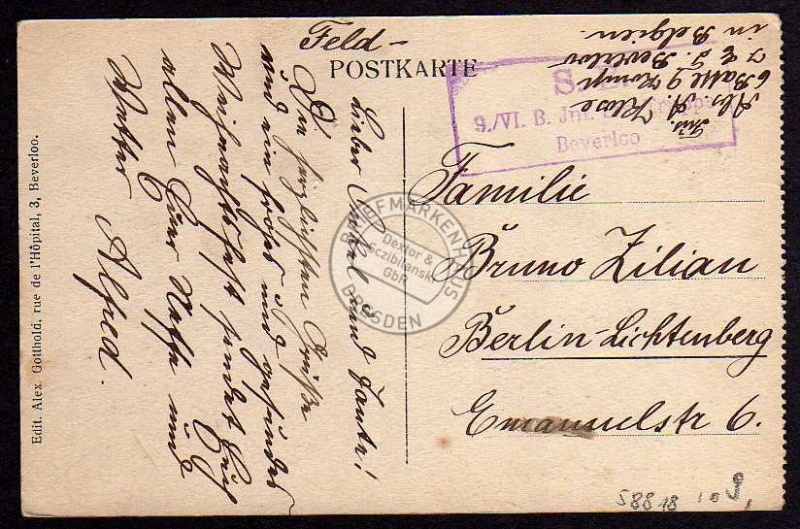 Feld-
POSTKARTE
Lieber Onkel und Tante!
Die herzlichsten Grüße
und ein frohes und gesundes
Weihnachtsfest sendet Euch
allen Euer Neffe und
Vetter
Alfred.
Abs. A. Klose
6 Batl 9 Komp
Beverloo
in Belgien.
S. B.
9./VI. B. Inf.
Beverloo
Familie
Bruno Zilian
Berlin-Lichtenberg
Emanuelstr 6.
Edit. Alex. Gotthold, rue de l'Hôpital, 3, Beverloo.
BRIEFMARKENHAUS
Dextor &
Sczibilanski
GbR
DRESDEN
58818